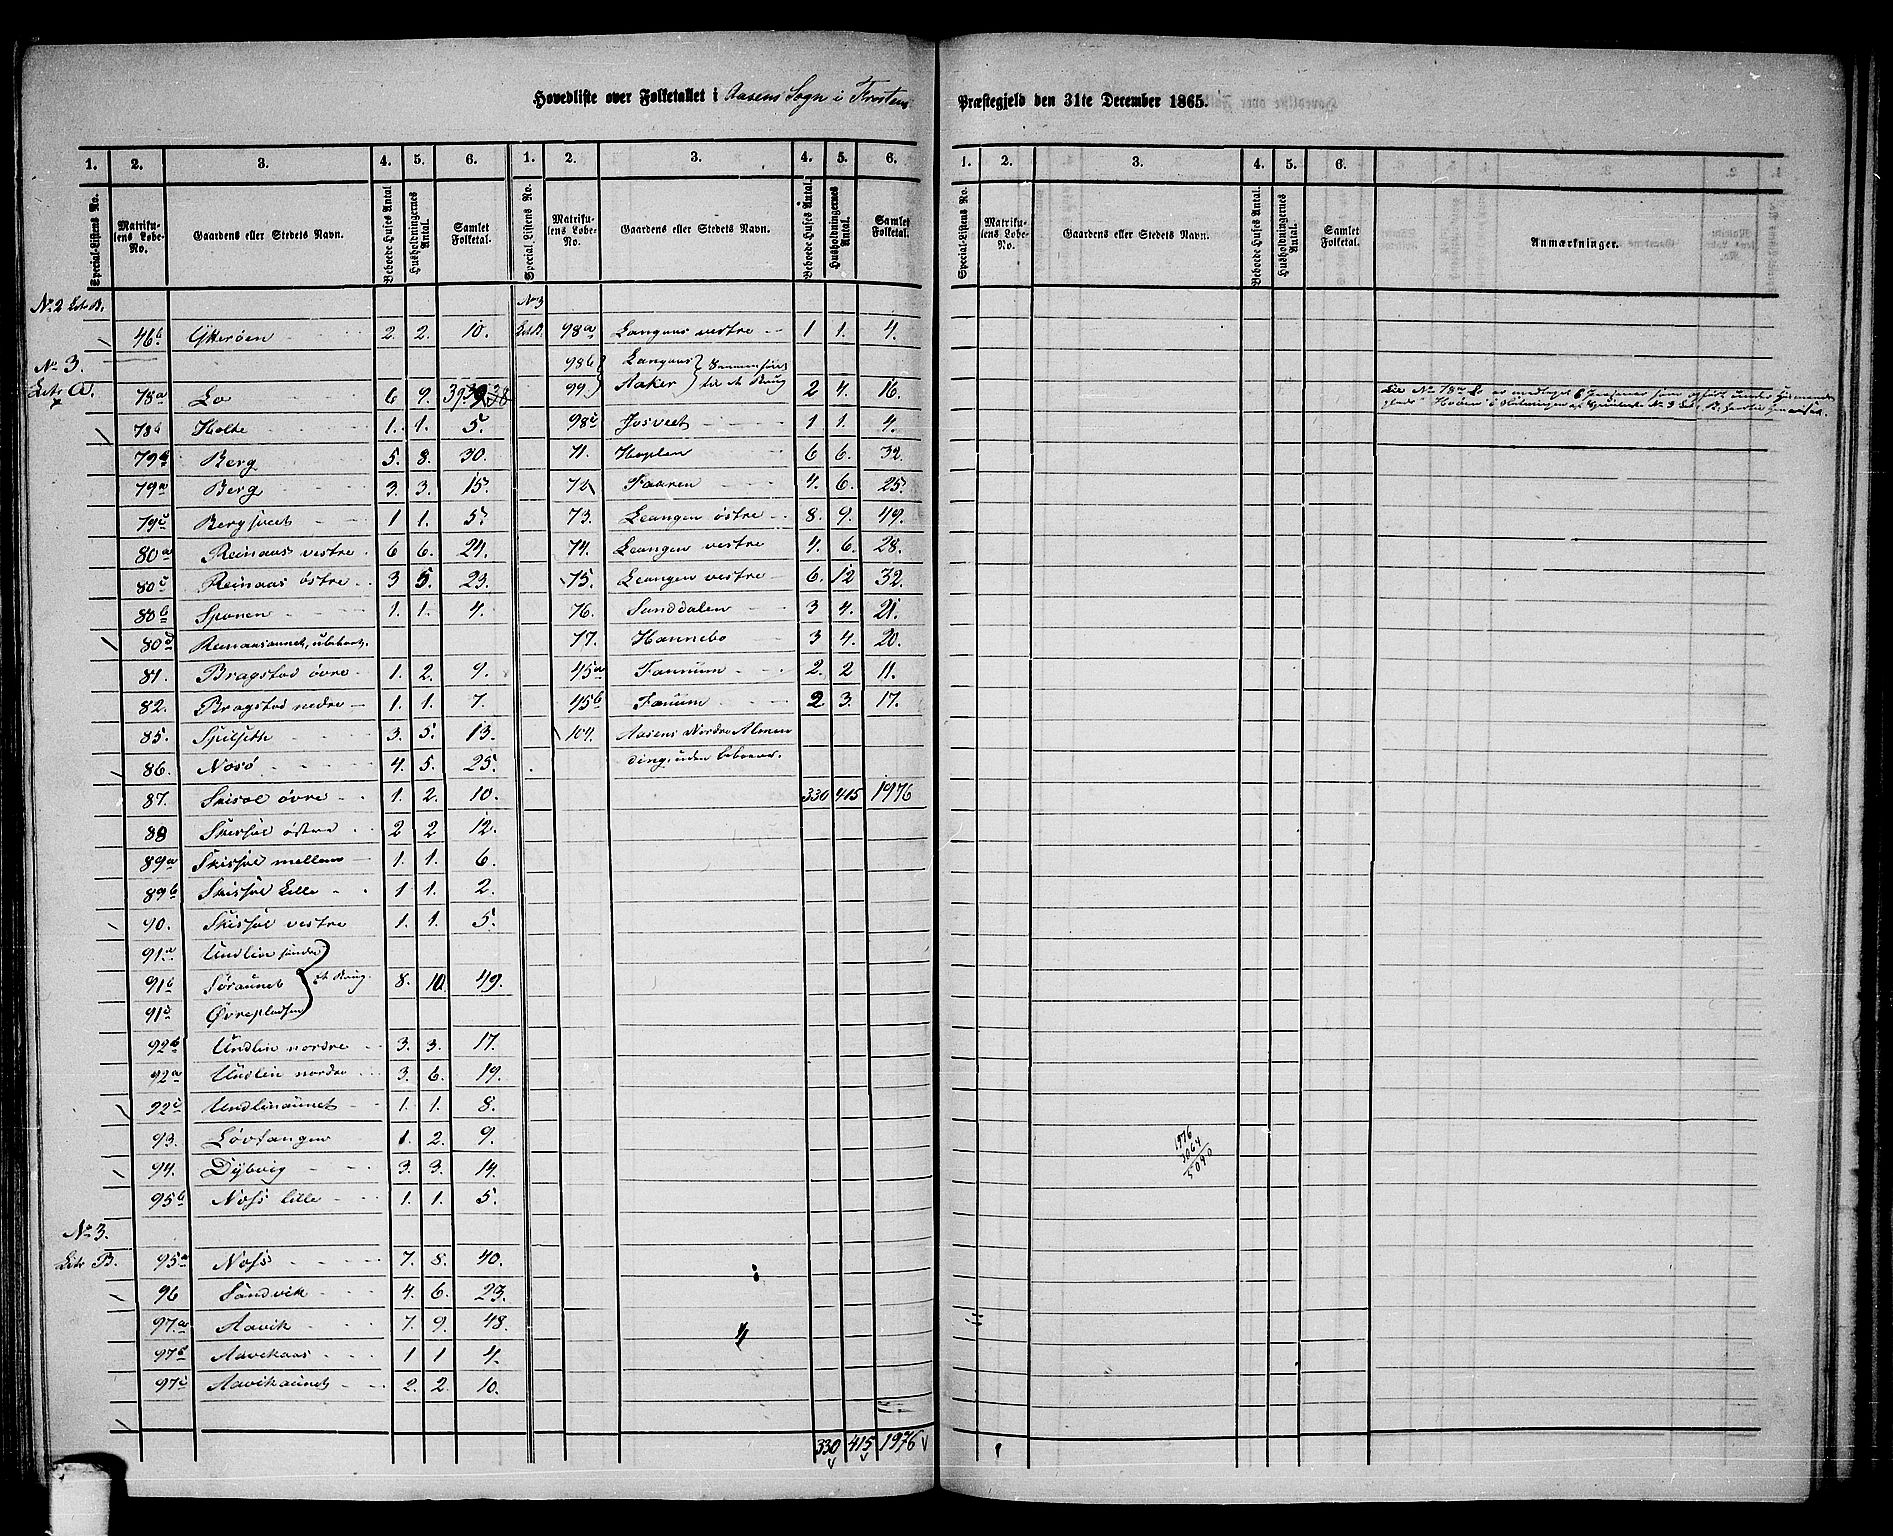 Hovedliste over Folketallet i Aasens Sogn i Frostens Præstegjeld den 31te December 1865.
1. 2. 3. 4. 5. 6. 1. 2. 3. 4. 5. 6.
Special-Listens No. Matrikulens Løbe-No. Gaardens eller Stedets Navn. Beboede Huses Antal Husholdningernes Antal. Samlet Folketal. Special Listens No. Matrikulens Løbe-No. Gaardens eller Stedets Navn. Beboede Huses Antal. Husholdningernes Antal. Samlet Folketal.
No 2 Litr B.
46b 2. 2. 10.
No 3.
Litr A. 78a Lo 6 9. 39
78b Holte 1. 1. 5.
79b Berg 5. 8. 30.
79a Berg 3. 3. 15.
79c Bergsveet 1 1. 5.
80a Reinaas vestre 6 6. 24.
80c Reinaas østre 3 5. 23.
80b Sponen 1. 1. 4.
80d Reinaasaunet, ubeboet.
81. Bragstad øvre 1. 2. 9.
82. Bragstad nedre 1. 1. 7.
85. 3. 5. 13.
86. Nosö 4. 5. 25.
87. øvre 1. 2. 10.
88 østre 2 2 12.
89a mellem 1. 1. 6.
89b Lille 1 1. 2.
90. vestre 1 1. 5.
91a Undlin søndre
91b Søraunet } et Brug. 8. 10 49.
91c Øvrepladsen
92b Undlin nordre 3. 3. 17.
92a Undlin nordre 3. 6. 19.
92c Undlinaunet 1. 1. 8.
93. Løvtangen 1. 2. 9.
94. Dybvig 3. 3. 14.
95b Noss lille 1. 1. 5.
No 3.
Litr B. 95a Noss 7. 8. 40.
96 Sandvik 4. 6. 23.
97a Aavik 7. 9. 48.
97b Aavikaas 1 1 4.
97c Aavikaunet 2. 2. 10.
No 3
Litr B. 98a Langaas vestre 1 1. 4.
98b Langaas
99. Aaker } et Brug 2 4. 16.
98c Josveet 1 1. 4.
71. Hoplen 6 6. 32.
72 Faaren 4. 6. 25.
73. Leangen østre 8. 9. 49.
74. Leangen vestre 4. 6. 28.
75. Leangen vestre 6. 12 32.
76. Sunddalen 3 4. 21.
77. Hannebo 3 4. 20.
45a Fannum 2. 2 11.
45b Fanum 2 3. 17.
104. Aasens Nordre Almen
ding, uden beboere.
330 415 1976
330 415 1976
1. 2. 3. 4. 5. 6.
Special-Listens No. Matrikulens Løbe-No. Gaardens eller Stedets Navn. Beboede Huses Antal. Husholdningernes Antal. Samlet Folketal. Anmærkninger.
1976
3064
5040